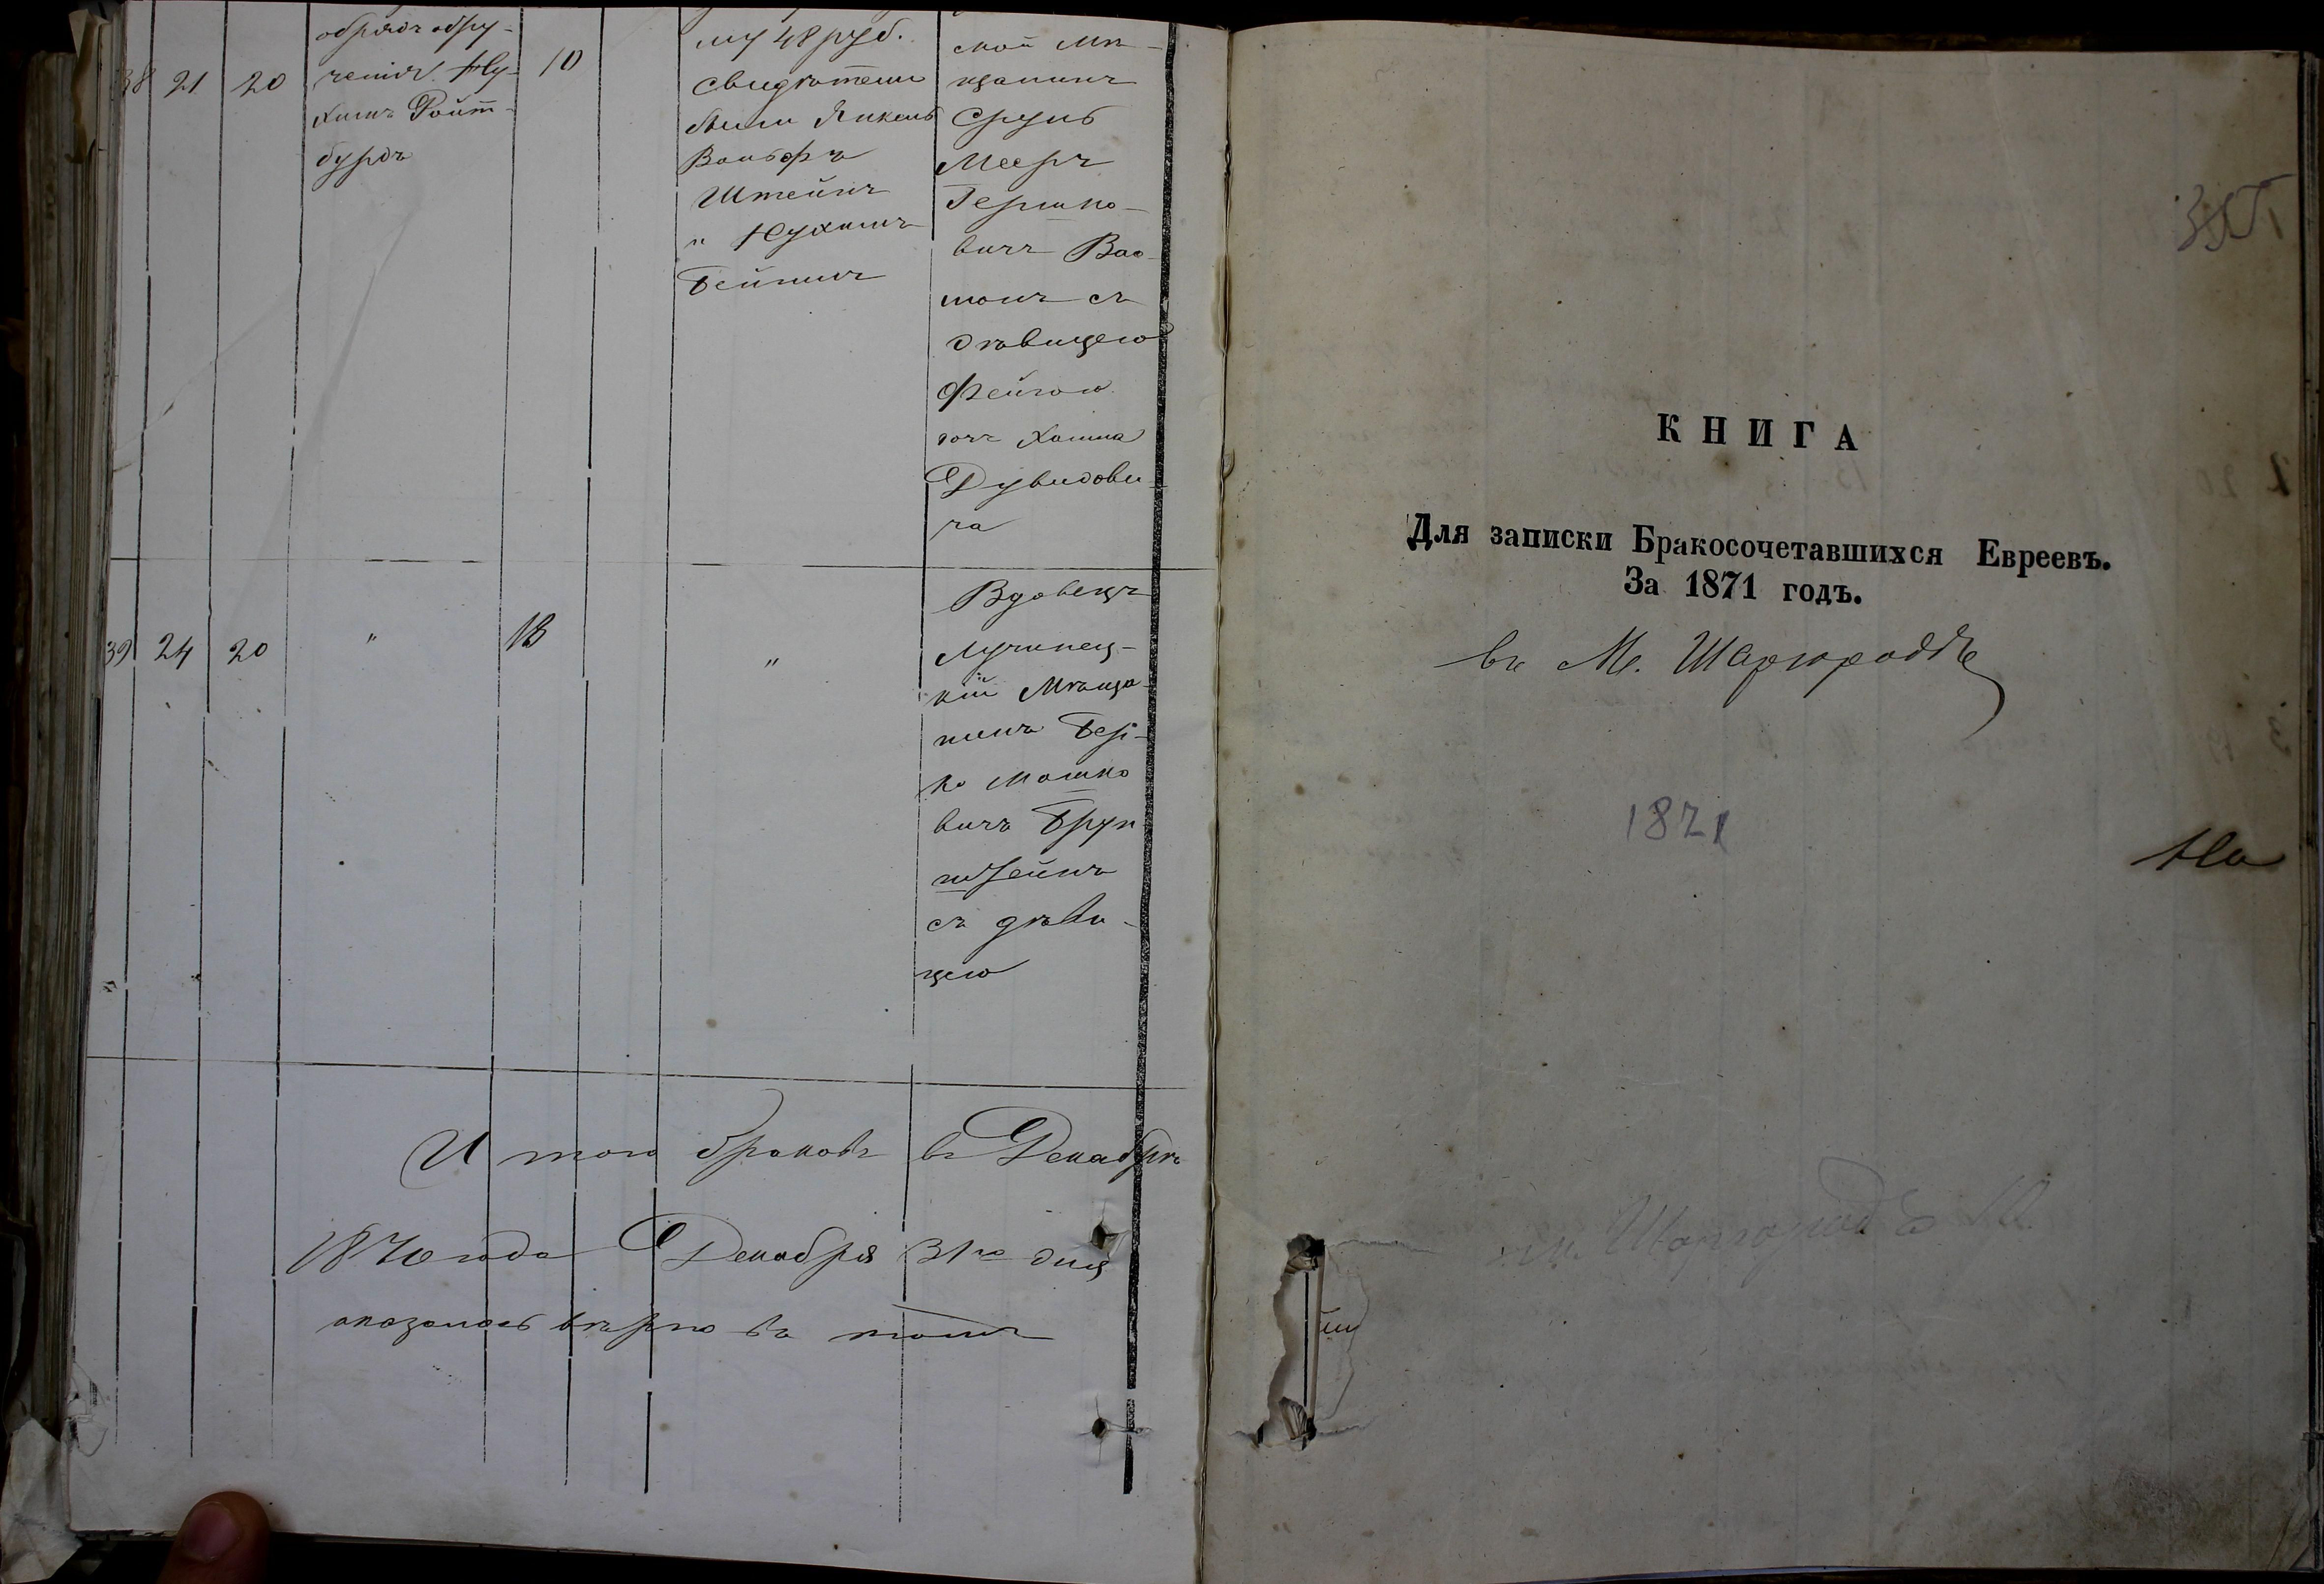 38 21 20
обрядъ обру-
ченія Ну-
химъ Ройт-
бурдъ
10
му 48 руб.
Свидѣтели
были Янкель
Вольфъ
Штейнъ
и Нухимъ
Бейниш
ской Мѣ-
щанинъ
Сруль
Мееръ
Гершко-
вичъ Вас-
манъ съ
дѣвицею
Фейгою
дочь Хаима
Дувидови-
ча
39 24 20
"
18
"
Вдовецъ
Лучинец-
кій Мѣща-
нинъ Бер-
ко Мошко
вичъ Брун
штейнъ
съ дѣви-
цею
Итого браковъ въ Декабрѣ
1870 года Декабря 31го дня
оказалось вѣрно въ томъ
КНИГА
Для записки Бракосочетавшихся Евреевъ.
За 1871 годъ.
въ М. Шаргродѣ
1871
На